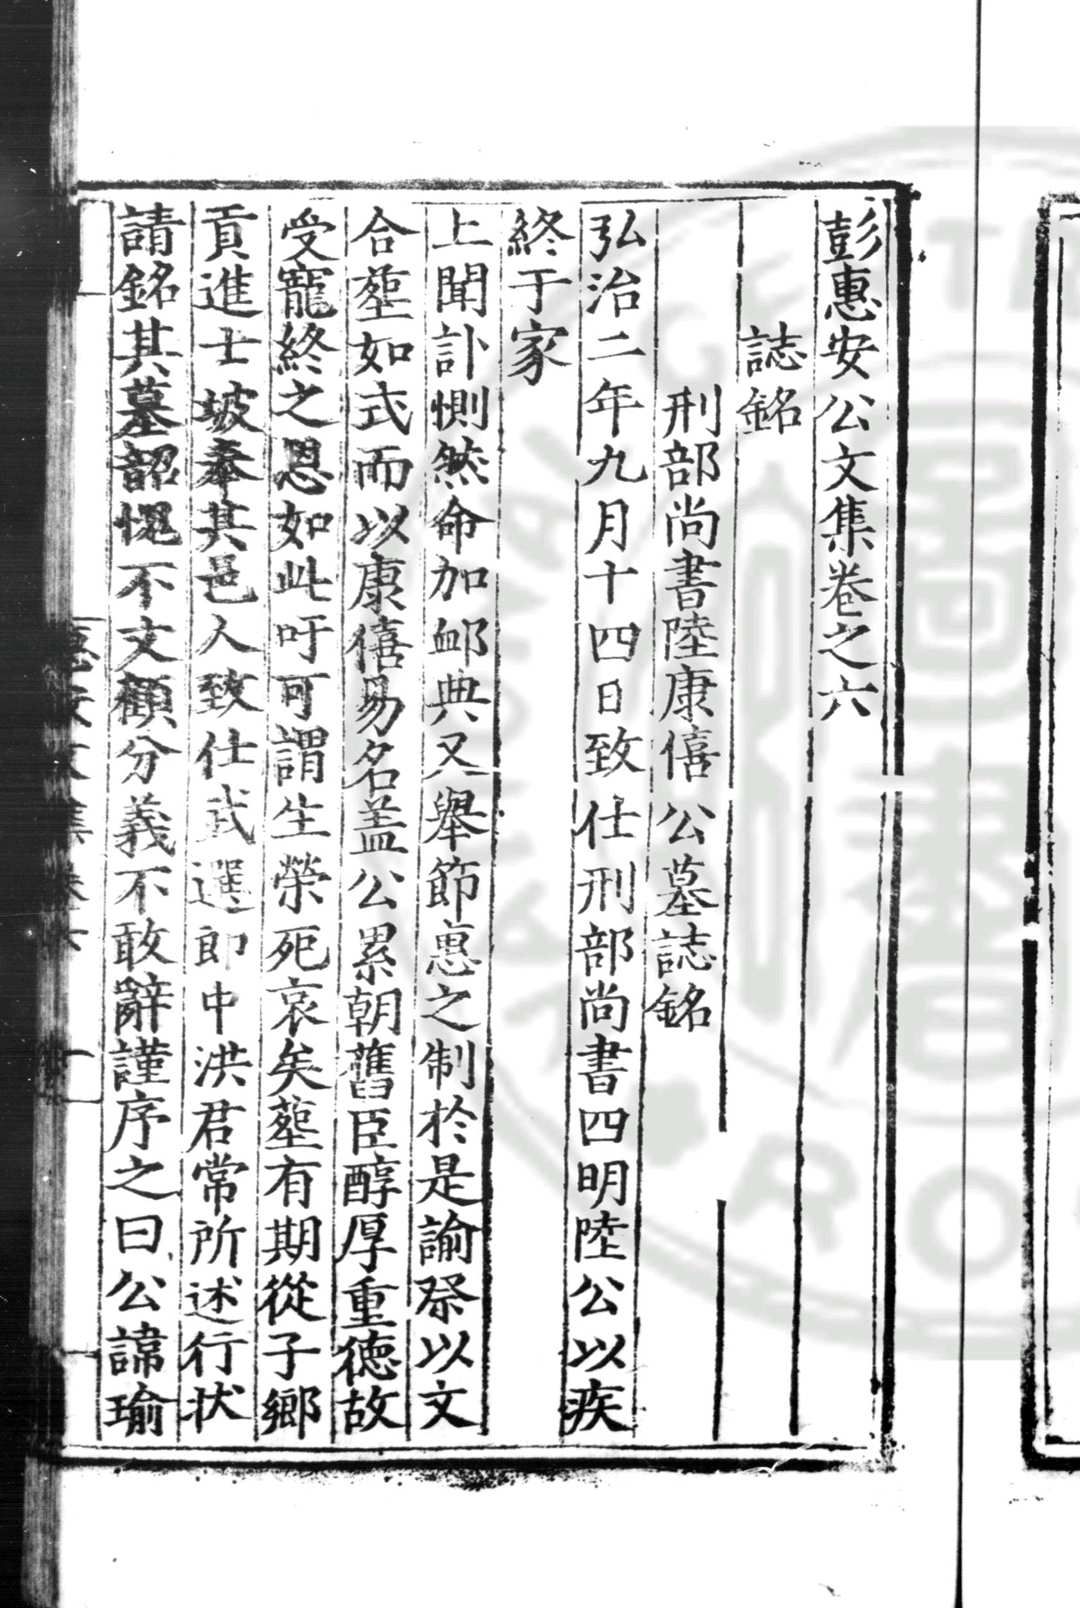 彭惠安公文集卷之六
誌銘
刑部尚書陸康僖公墓誌銘
弘治二年九月十四日致仕刑部尚書四明陸公以疾
終于家
上聞訃惻然命加䘏典又舉節惠之制於是諭祭以文
合塟如式而以康僖易名盖公累朝舊臣醇厚重德故
受寵終之恩如此吁可謂生榮死哀矣塟有期從子鄉
貢進士坡奉其邑人致仕武選郎中洪君常所述行状
請銘其墓韶愧不文顧分義不敢辭謹序之曰公諱瑜